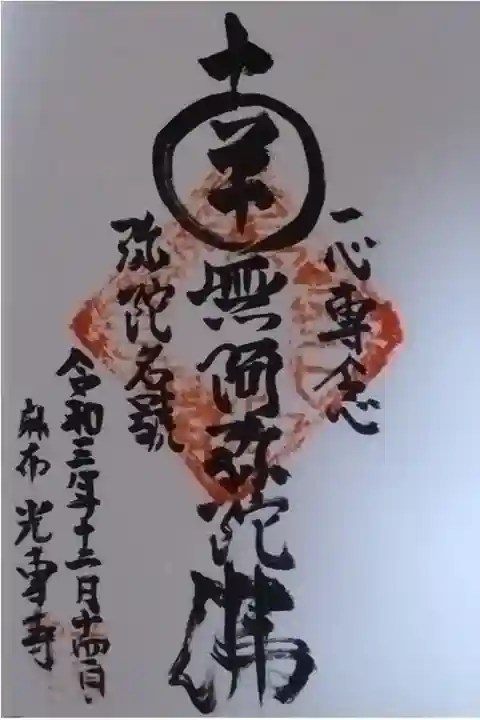 一心専念
南無阿弥陀佛
弥陀名號
令和三年十二月十四日
麻布 光専寺